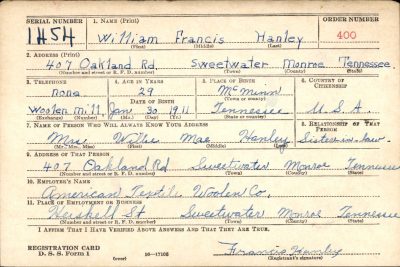 SERIAL NUMBER 1. NAME (Print) ORDER NUMBER
1454 William Francis Hanley 400
(First) (Middle) (Last)
2. ADDRESS (Print)
407 Oakland Rd. Sweetwater Monroe Tennessee.
(Number and street or R. F. D. number) (Town) (County) (State)
3. TELEPHONE 4. AGE IN YEARS 5. PLACE OF BIRTH 6. COUNTRY OF CITIZENSHIP
none 29 McMinn
DATE OF BIRTH (Town or county)
Woolen Mill Jan 30 1911 Tennessee U. S. A.
(Exchange) (Number) (Mo.) (Day) (Yr.) (State or country)
7. NAME OF PERSON WHO WILL ALWAYS KNOW YOUR ADDRESS 8. RELATIONSHIP OF THAT PERSON
Mrs Willie Mae Hanley Sister-in-law.
(Mr., Mrs., Miss) (First) (Middle) (Last)
9. ADDRESS OF THAT PERSON
407 Oakland Rd Sweetwater Monroe Tennessee
(Number and street or R. F. D. number) (Town) (County) (State)
10. EMPLOYER'S NAME
American Textile Woolen Co.
11. PLACE OF EMPLOYMENT OR BUSINESS
St Sweetwater Monroe Tennessee
(Number and street or R. F. D. number) (Town) (County) (State)
I AFFIRM THAT I HAVE VERIFIED ABOVE ANSWERS AND THAT THEY ARE TRUE.
REGISTRATION CARD
D. S. S. Form 1 (over) Francis Hanley
(Registrant's signature)